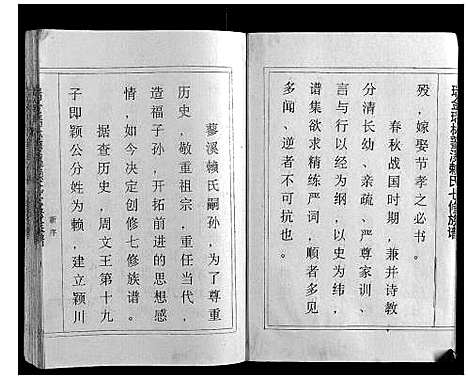 瑞金瑶林蓼溪赖氏七修族谱
殁,嫁娶节孝之必书。
春秋战国时期,兼并诗教
分清长幼、亲疏、严尊家训、
言与行以经为纲,以史为纬,
谱集欲求精练严词,顺者多见
多闻、逆者不可抗也。
蓼溪赖氏嗣孙,为了尊重
历史,敬重祖宗,重任当代,
造福子孙,开拓前进的思想感
情,如今决定创修七修族谱。
据查历史,周文王第十九
子即颖公分姓为赖,建立颖川
新序